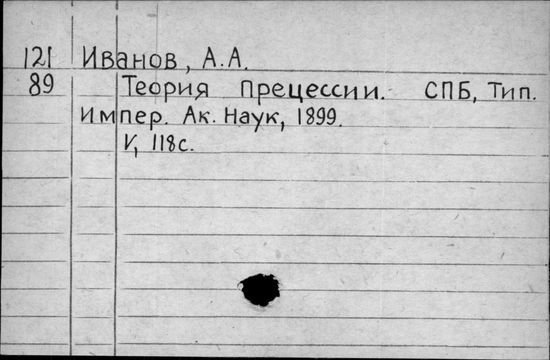 121 Иванов, А.А.
89 Теория Прецессии. СПБ, Тип.
Импер. Ак. Наук, 1899.
V, 118с.